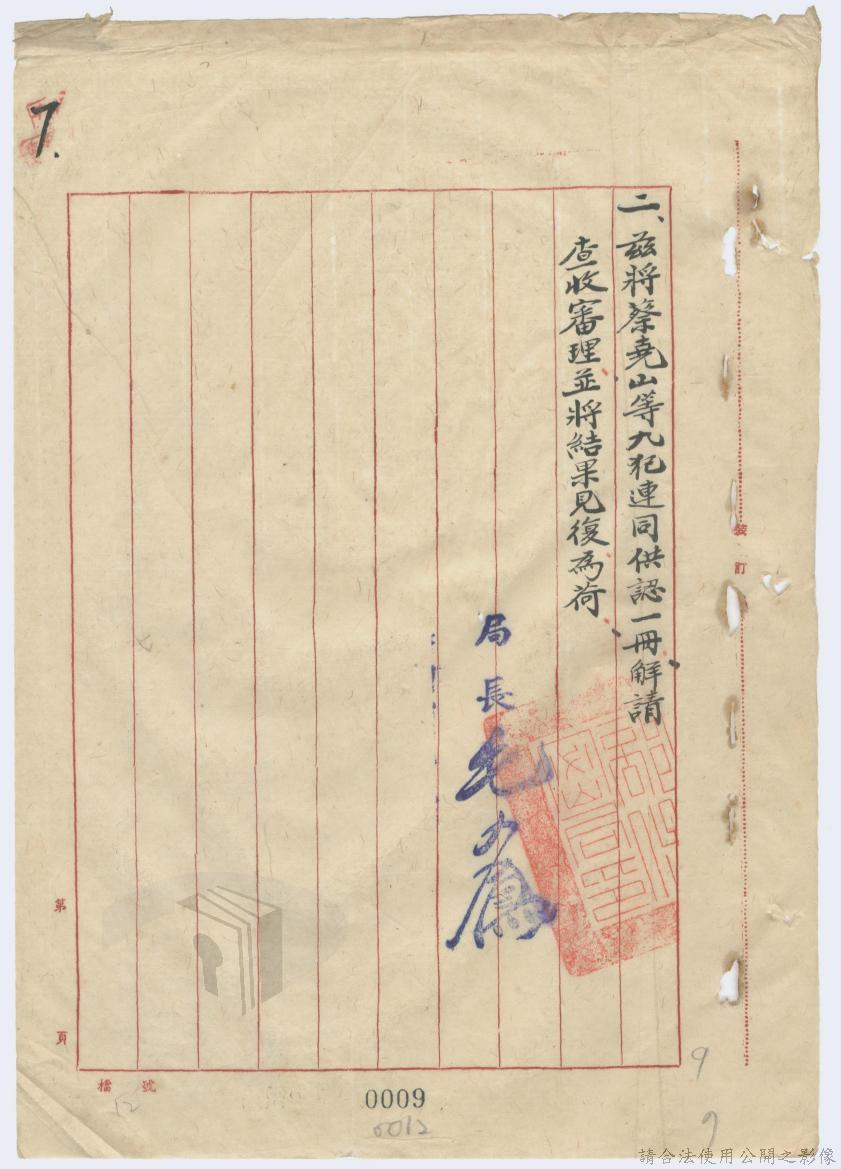 7.
二、兹將蔡堯山等九犯連同供認一冊解請
查收審理並將結果見復為荷
局長毛人鳳
裝
訂
第
頁
檔號
12
0009
0012
9
9
請合法使用公開之影像